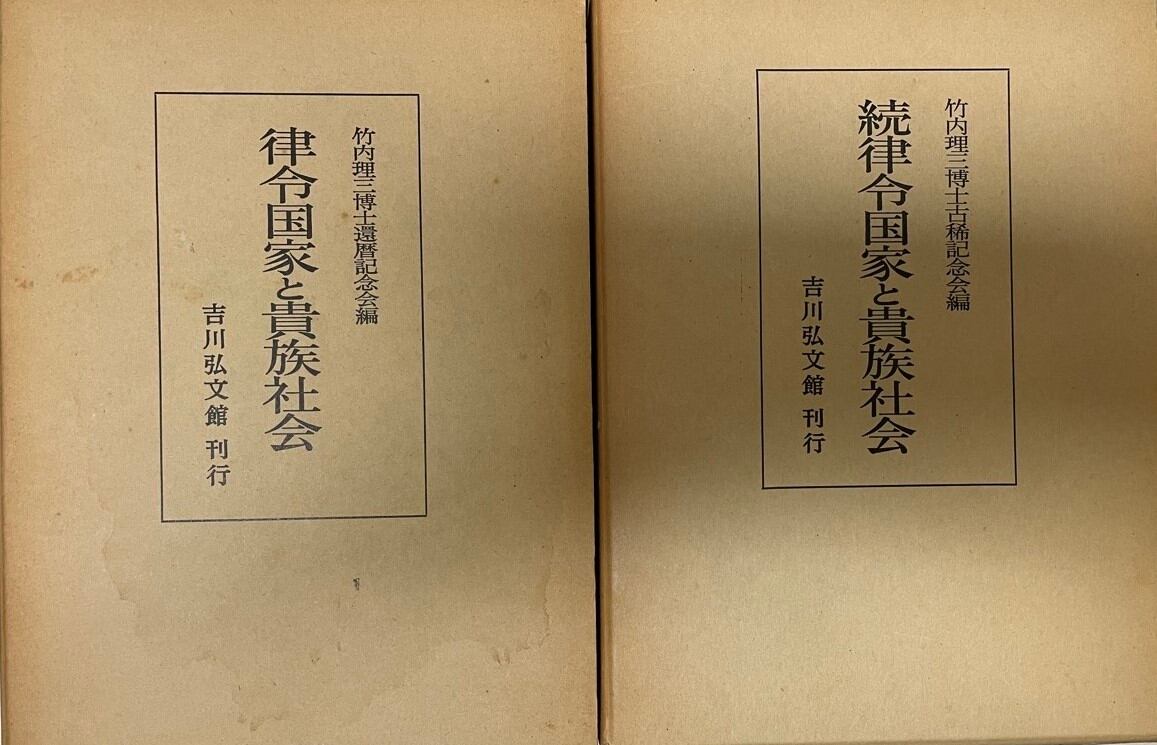 竹内理三博士還暦記念会編
律令国家と貴族社会
吉川弘文館 刊行
竹内理三博士古稀記念会編
続律令国家と貴族社会
吉川弘文館 刊行